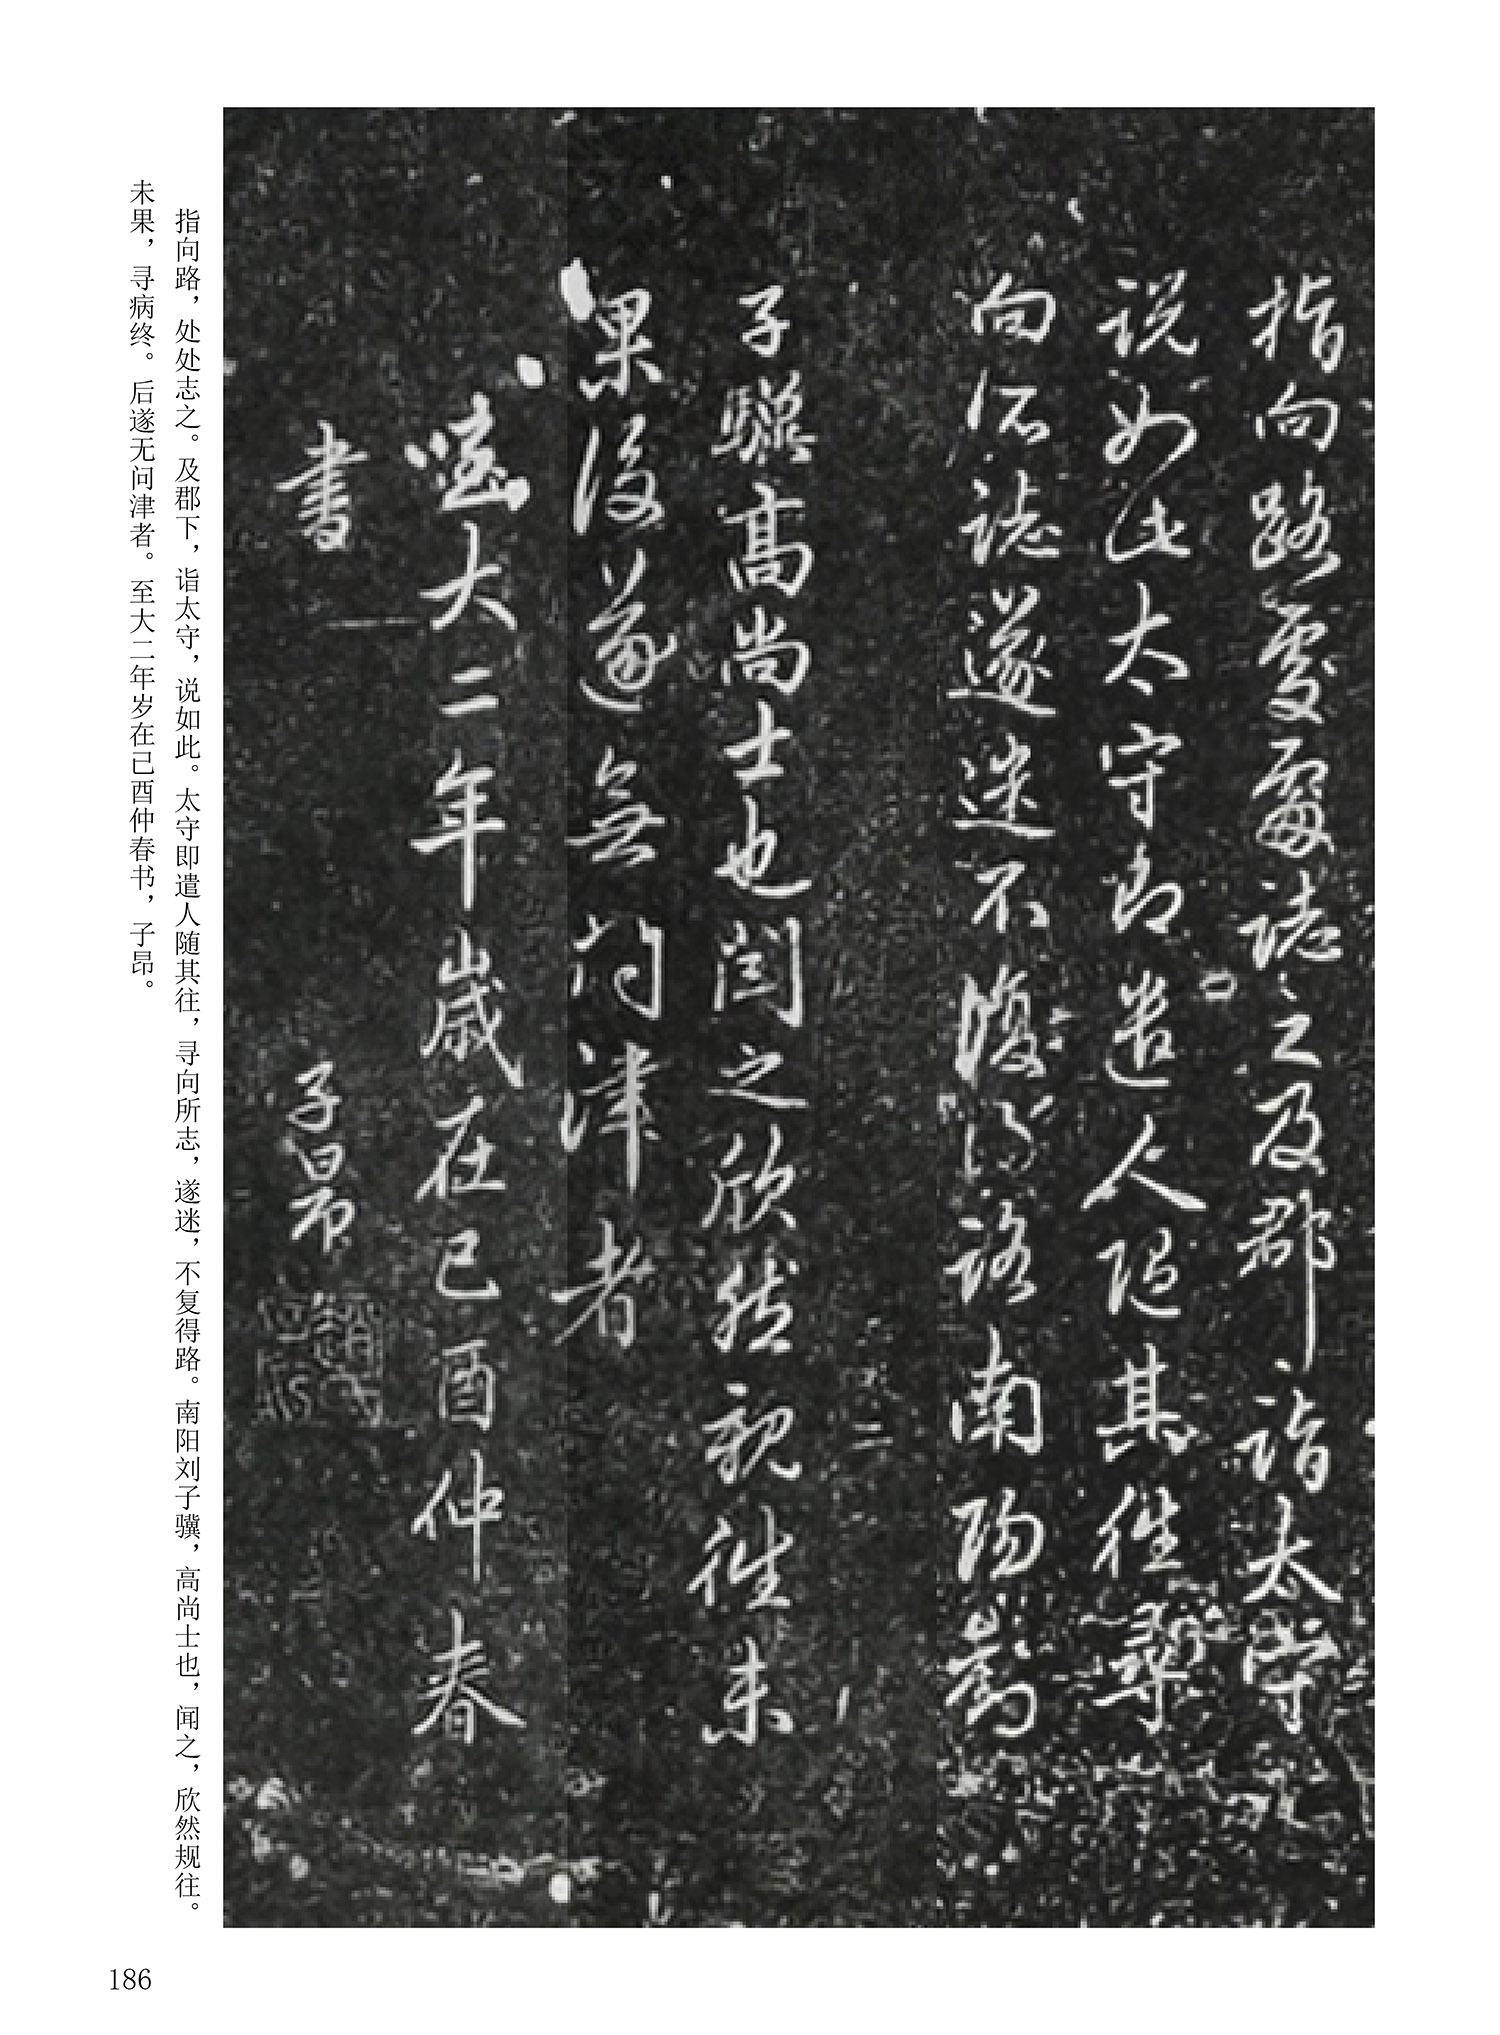 指向路處處誌之及郡詣太守
説如此太守即遣人随其往尋
向所誌遂迷不復得路南陽劉
子驥高尚士也聞之欣然規往未
果後遂無問津者
至大二年歲在己酉仲春
書 子昂
趙氏子昂
指向路，处处志之。及郡下，诣太守，说如此。太守即遣人随其往，寻向所志，遂迷，不复得路。南阳刘子骥，高尚士也，闻之，欣然规往。
未果，寻病终。后遂无问津者。至大二年岁在己酉仲春书，子昂。
186